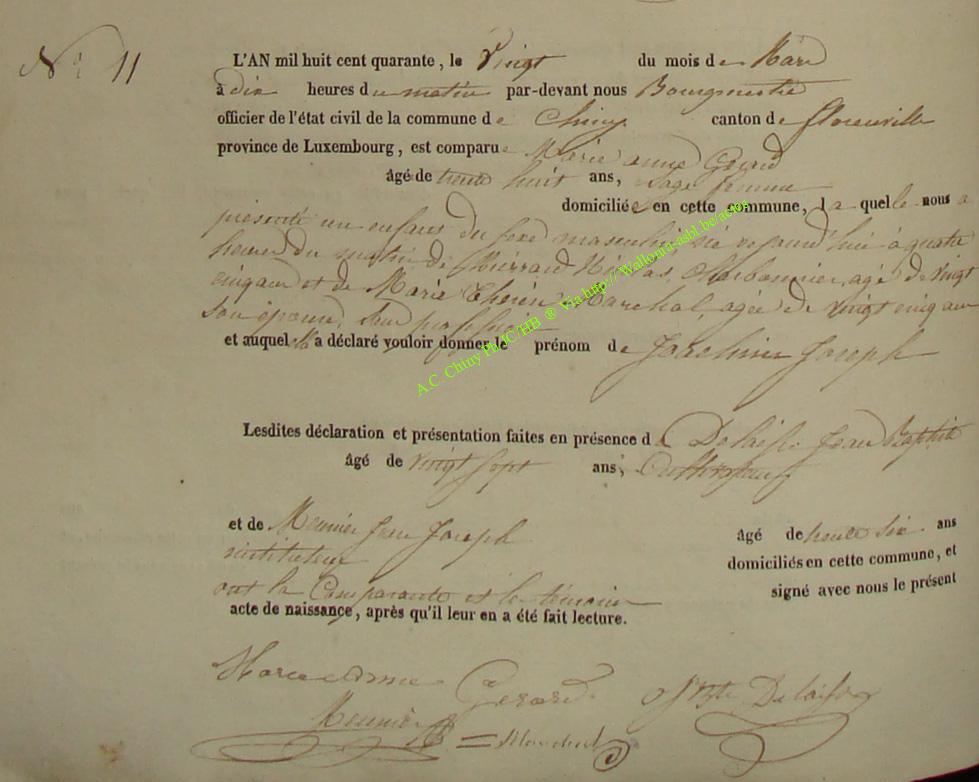 N° 11
L'AN mil huit cent quarante, le Vingt du mois de Mars
à dix heures du matin par-devant nous Bourgmestre
officier de l'état civil de la commune de Chiny canton de florenville
province de Luxembourg, est comparue Marie anne Gerard
âgé de trente huit ans, Sage femme
domiciliée en cette commune, la quelle nous a
présenté un enfant du sexe masculin, né aujourd'hui à quatre
heures du matin de Nicolas Charbonnier, agé de vingt
cinq ans et de Marie Therèse Marchal, agée de vingt cinq ans
Son épouse, sans profession
et auquel elle a déclaré vouloir donner le prénom de Joseph
Lesdites déclaration et présentation faites en présence de Delaisse Jean Baptiste
âgé de vingt sept ans,
et de Meunier Jean Joseph âgé de trente six ans
instituteur domiciliés en cette commune, et
ont la Comparante et les témoins signé avec nous le présent
acte de naissance, après qu'il leur en a été fait lecture.
Marie anne Gerard J Bte Delaisse
Meunier Marchal
A.C. Chiny Ph JC/HB ® Via http://Wallonia-asbl.be/actes